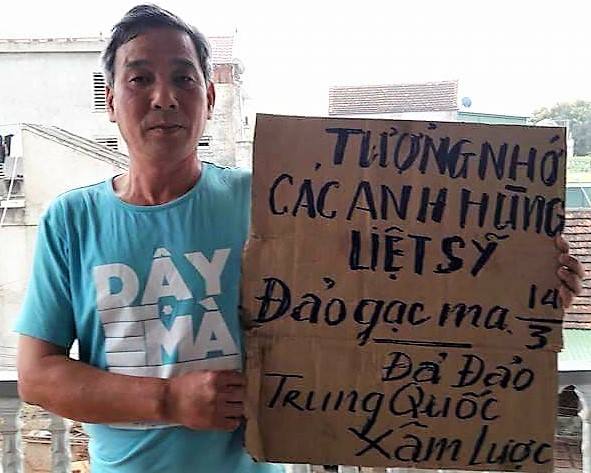 DẬY
MÀ
TƯỞNG NHỚ
CÁC ANH HÙNG
LIỆT SỸ
Đảo gạc ma. 14/3
Đả Đảo
Trung Quốc
Xâm Lược